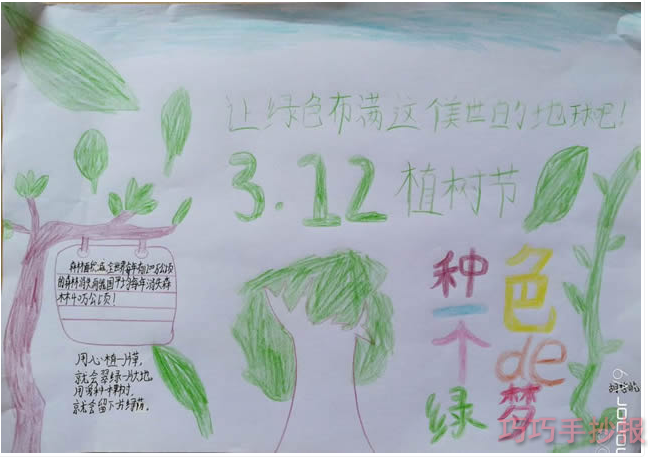 让绿色布满这个美世的地球吧!
3.12 植树节
种一个绿
色de梦
的森林消失我国平均每年消失森
用心植一片草,
就会翠绿一片大地,
用爱种一棵树,
就会留下一片绿荫。
巧巧手抄报
honor 9